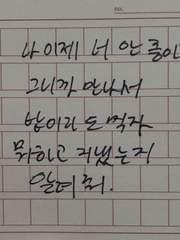 나 이제 너 안 좋아
그니까 만나서
밥이라도 먹자
뭐하고 지냈는지
알려줘.